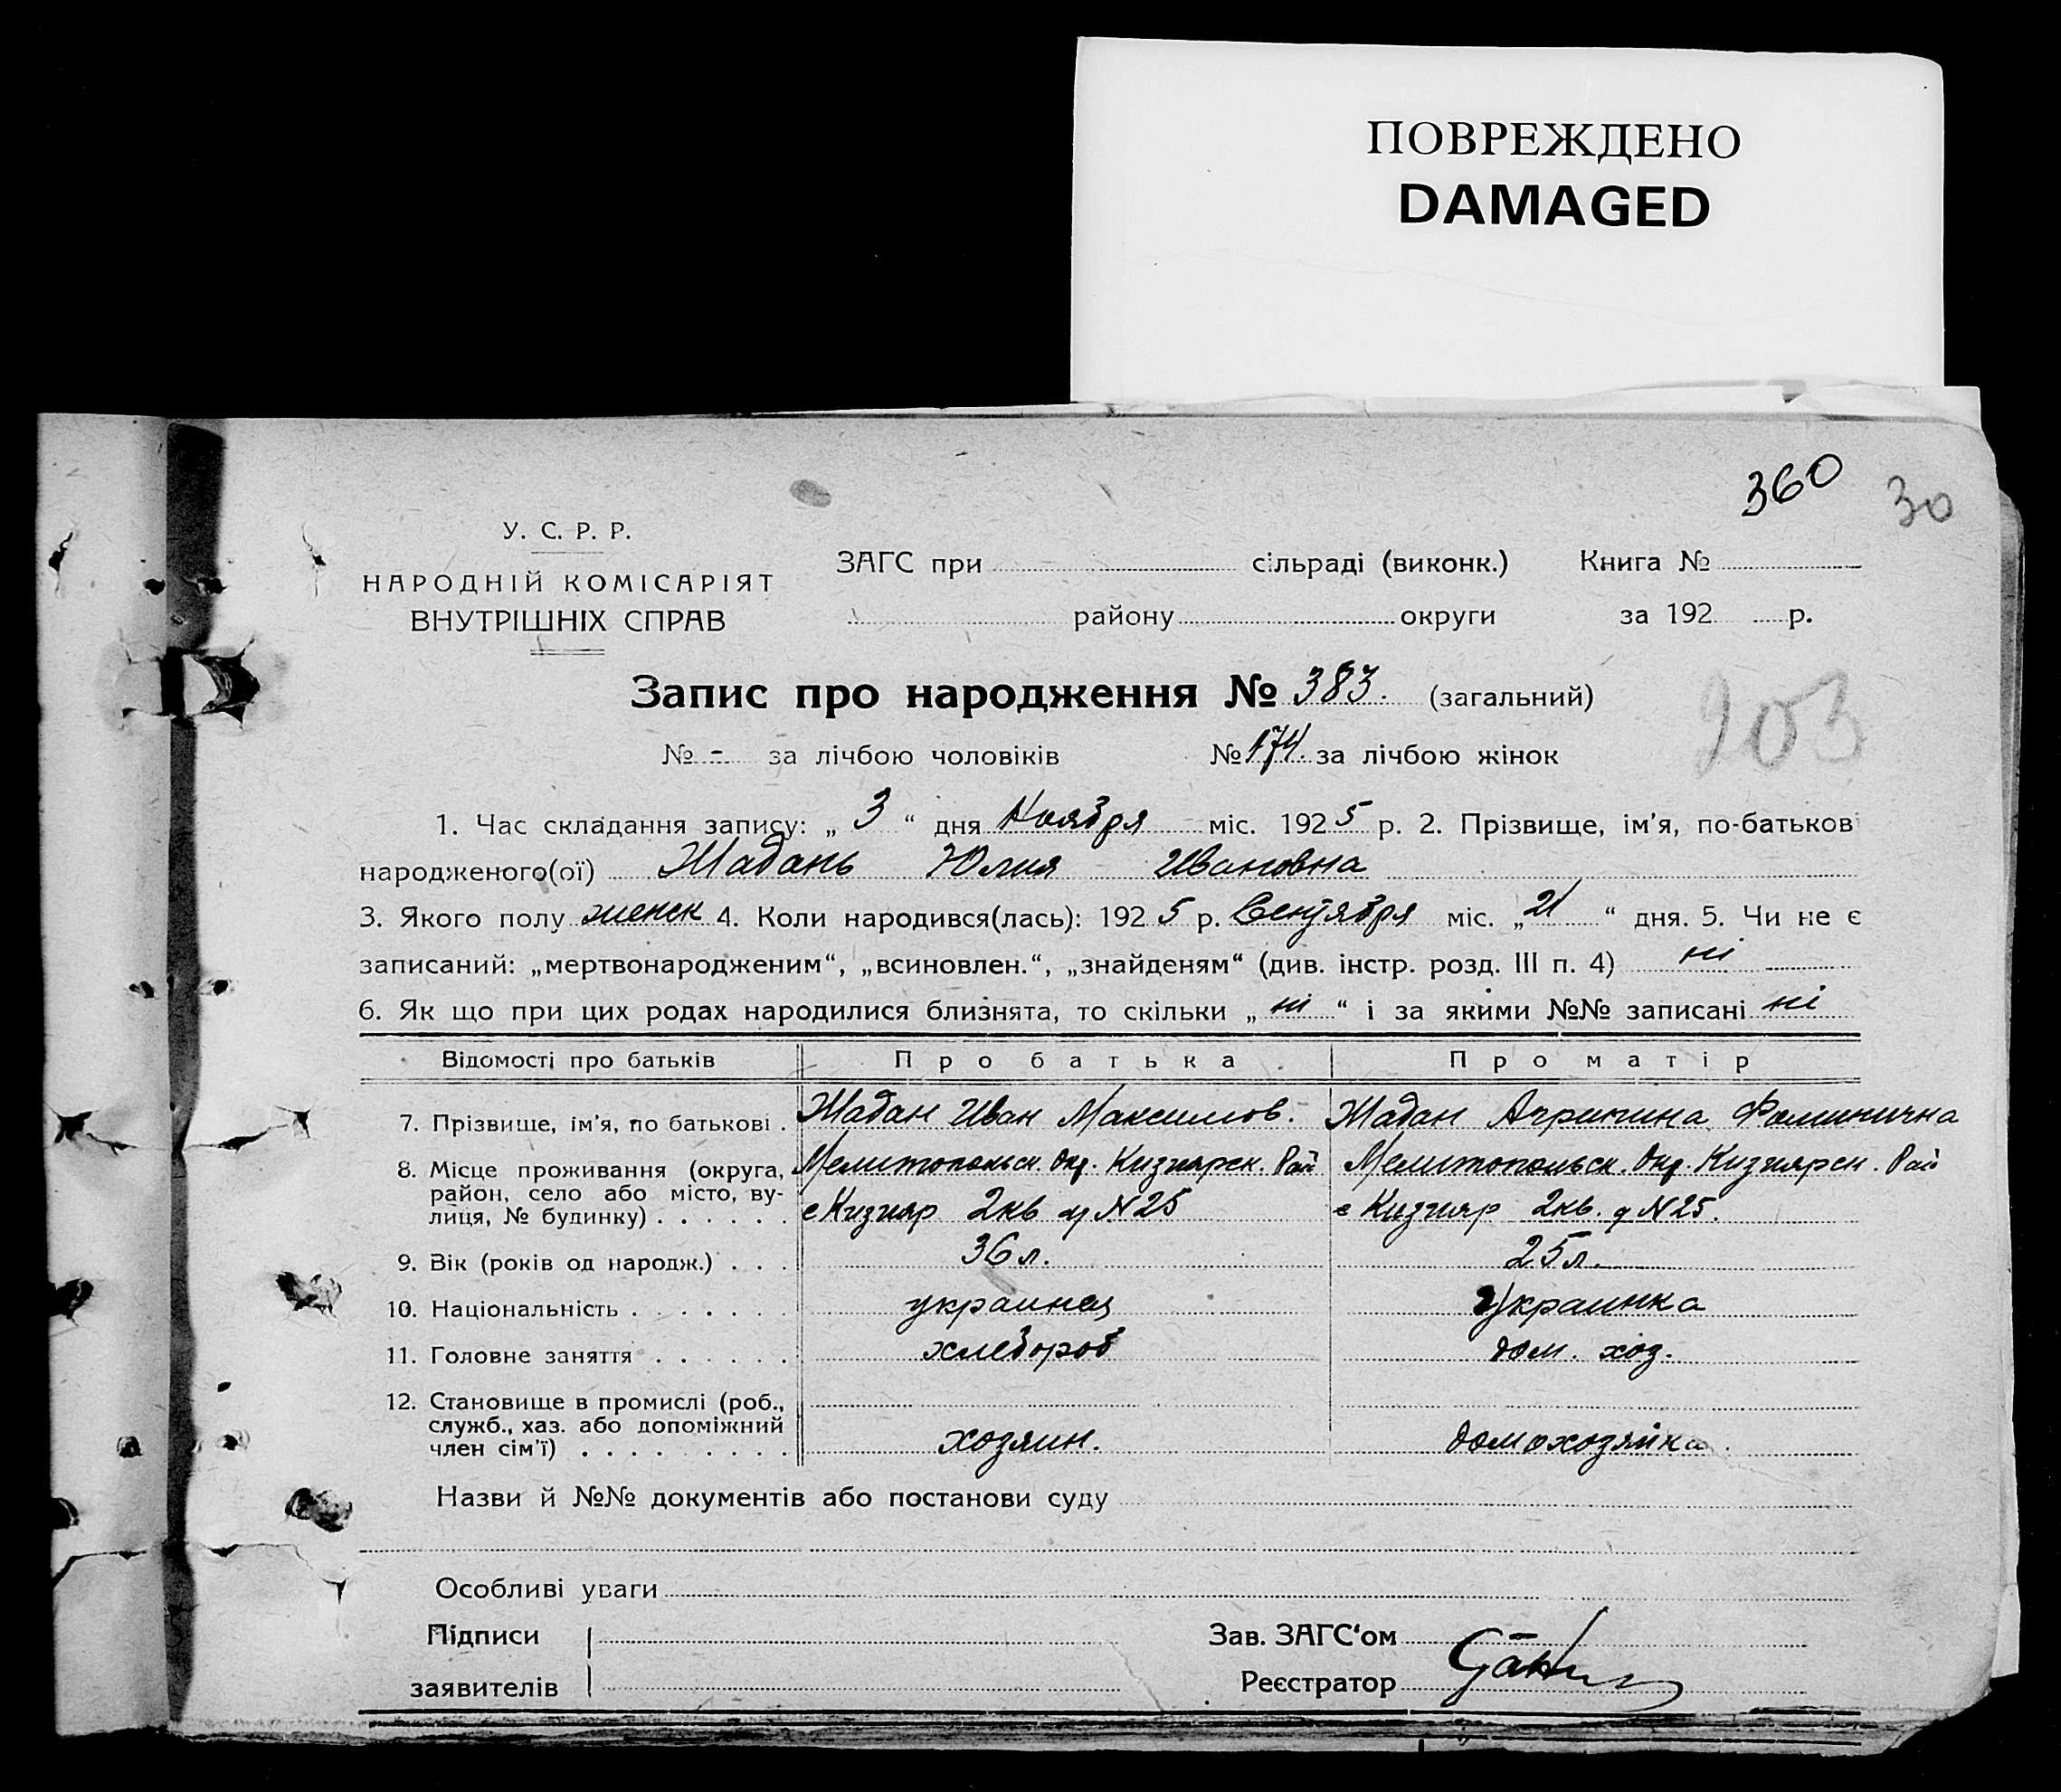 ПОВРЕЖДЕНО
DAMAGED
360 30
У. С. Р. Р.
НАРОДНІЙ КОМІСАРІЯТ
ВНУТРІШНІХ СПРАВ
ЗАГС при сільраді (виконк.) Книга №
району округи за 192 р.
Запис про народження № 383. (загальний)
203
№ - за лічбою чоловіків № 174. за лічбою жінок
1. Час складання запису: „ 3 “ дня Ноября міс. 1925 р. 2. Прізвище, ім'я, по-батькові
народженого(ої) Жадань Юлия Ивановна
3. Якого полу женск 4. Коли народився(лась): 1925 р. Сентября міс. „ 21 “ дня. 5. Чи не є
записаний: „мертвонародженим“, „всиновлен.“, „знайденям“ (див. інстр. розд. III п. 4) ні
6. Як що при цих родах народилися близнята, то скільки „ ні “ і за якими №№ записані ні
Відомості про батьків Про батька Про матір
7. Прізвище, ім'я, по батькові . Жадан Иван Максимов. Жадан Агрипина Фоминична
8. Місце проживання (округа, Мелитопольск. Окр. Кизиярск. Рай Мелитопольск. Окр. Кизиярск. Рай
район, село або місто, ву-
лиця, № будинку) . . . . . . с Кизияр 2кв д N25 с Кизияр 2кв. д N25.
9. Вік (років од народж.) . . . 36 л. 25 л.
10. Національність . . . . . . украинец Украинка
11. Головне заняття . . . . . . хлебороб дом. хоз.
12. Становище в промислі (роб.,
служб., хаз. або допоміжний
член сім'ї) . . . . . . . . . хозяин. домохозяйка.
Назви й №№ документів або постанови суду
Особливі уваги
Підписи Зав. ЗАГС'ом
заявителів Реєстратор